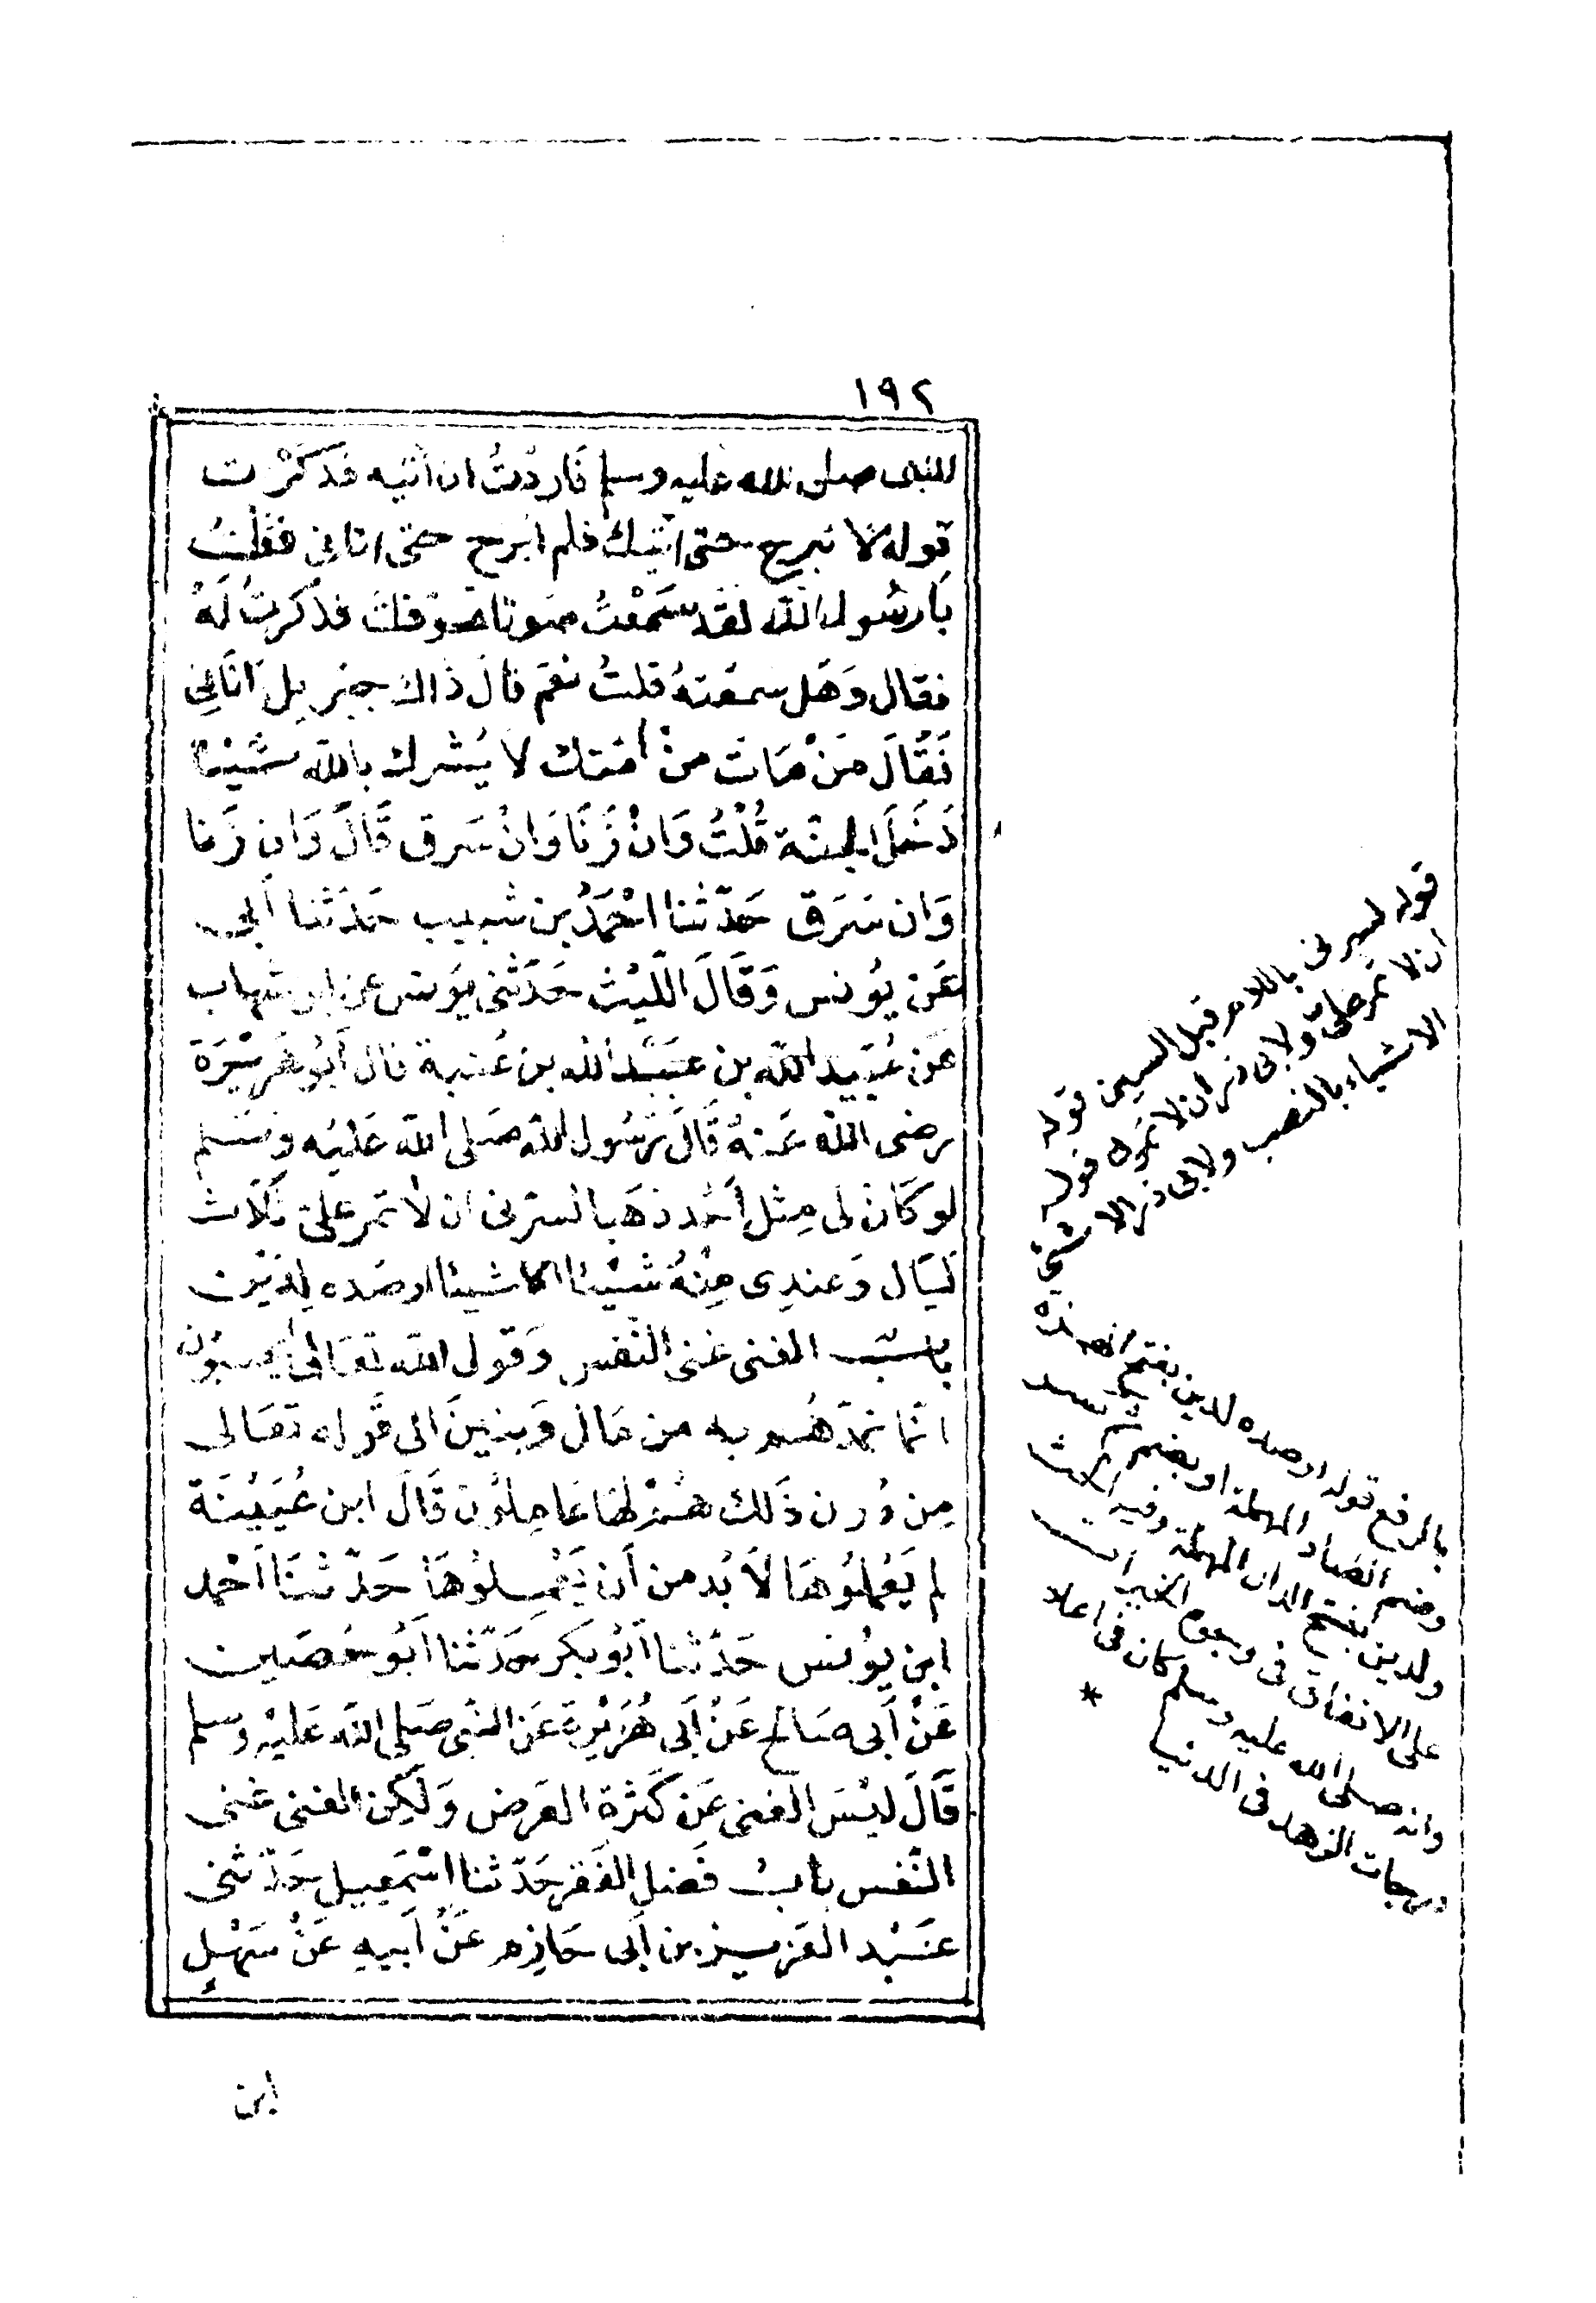 ١٩٢
للنبى صلى الله عليه وسلم فَاردْتُ ان اٰتيه فذكرْت
قوله لا تبرح حتى اٰتيك فلم ابرح حتى اتانى فقلتُ
يَا رسُول الله لقد سَمعْتُ صوتا خوفت فذكرتُ لَهُ
فقال وَهَل سمعتهُ قلتُ نعَم قال ذاك جبريل اتَانِى
فَقَالَ مَنْ مَاتَ منْ امتك لا يُشرك بالله شَيْئا
دَخَلَ الجنَّة قُلْتُ وَانْ زَنَا وَانْ سَرق قَالَ وَان زَنا
وَان سَرَق حَدّثنا احْمَدُ بن شبيب حَدثنا أبى
عَن يُونس وَقَالَ اللَّيْث حَدّثنى يونس عن ابن شهاب
عَن عُبَيد الله بن عَبْد الله بن عُتبة قال أَبُو هُرَيْرَة
رضى الله عَنهُ قَالَ رَسُول الله صَلى الله عَليْه وسَلم
لو كَانَ لى مِثل أُحُد ذهَبا لسرّنى ان لا تمر علىّ ثَلَاث
ليَال وَعندِى مِنْهُ شَيْئا الا شيئا ارصده لِدَيْن
باب الغنى غنى النّفس وَقول الله تعَالى أيحسبون
انّما نمدّهُم به من مَال وَبنينَ الى قَوله تعَالى
مِن دُون ذَلك هُمْ لهَا عَامِلُون قَالَ ابن عُيَيْنَة
لم يَعْملُوهَا لَا بُد من أَن يَعْملُوهَا حَدّثنَا أَحْمد
ابن يُونس حَدّثنا أَبُو بَكر حَدّثنا أَبُو حُصَين
عَنْ أَبى صَالح عَنْ أَبى هُرَيْرة عَن النَّبى صَلى الله عَليْه وسلم
قَالَ ليْسَ الغنى عَن كَثرة العَرض وَلَكن الغنى غنى
النّفس بابُ فَضل الفَقر حَدّثنا اسْمعيل حَدّثنى
عَبْد العَزيز بن أَبى حَازم عَنْ أَبيهِ عَنْ سَهْلِ
ابن
قوله لسرنى باللام قبل السين قوله
ان لا تمر على ولابى ذر ان لا تمر قوله
الا شيئا بالنصب ولابى ذر الا شئ
بالرفع قوله ارصده لدين بفتح الهمزة
وضم الصاد المهملة او بضم
ولدين بفتح الدال المهملة وفيه الحث
على الانفاق فى وجوه الخير
وانه صلى الله عليه وسلم كان فى اعلا
درجات الزهد فى الدنيا *